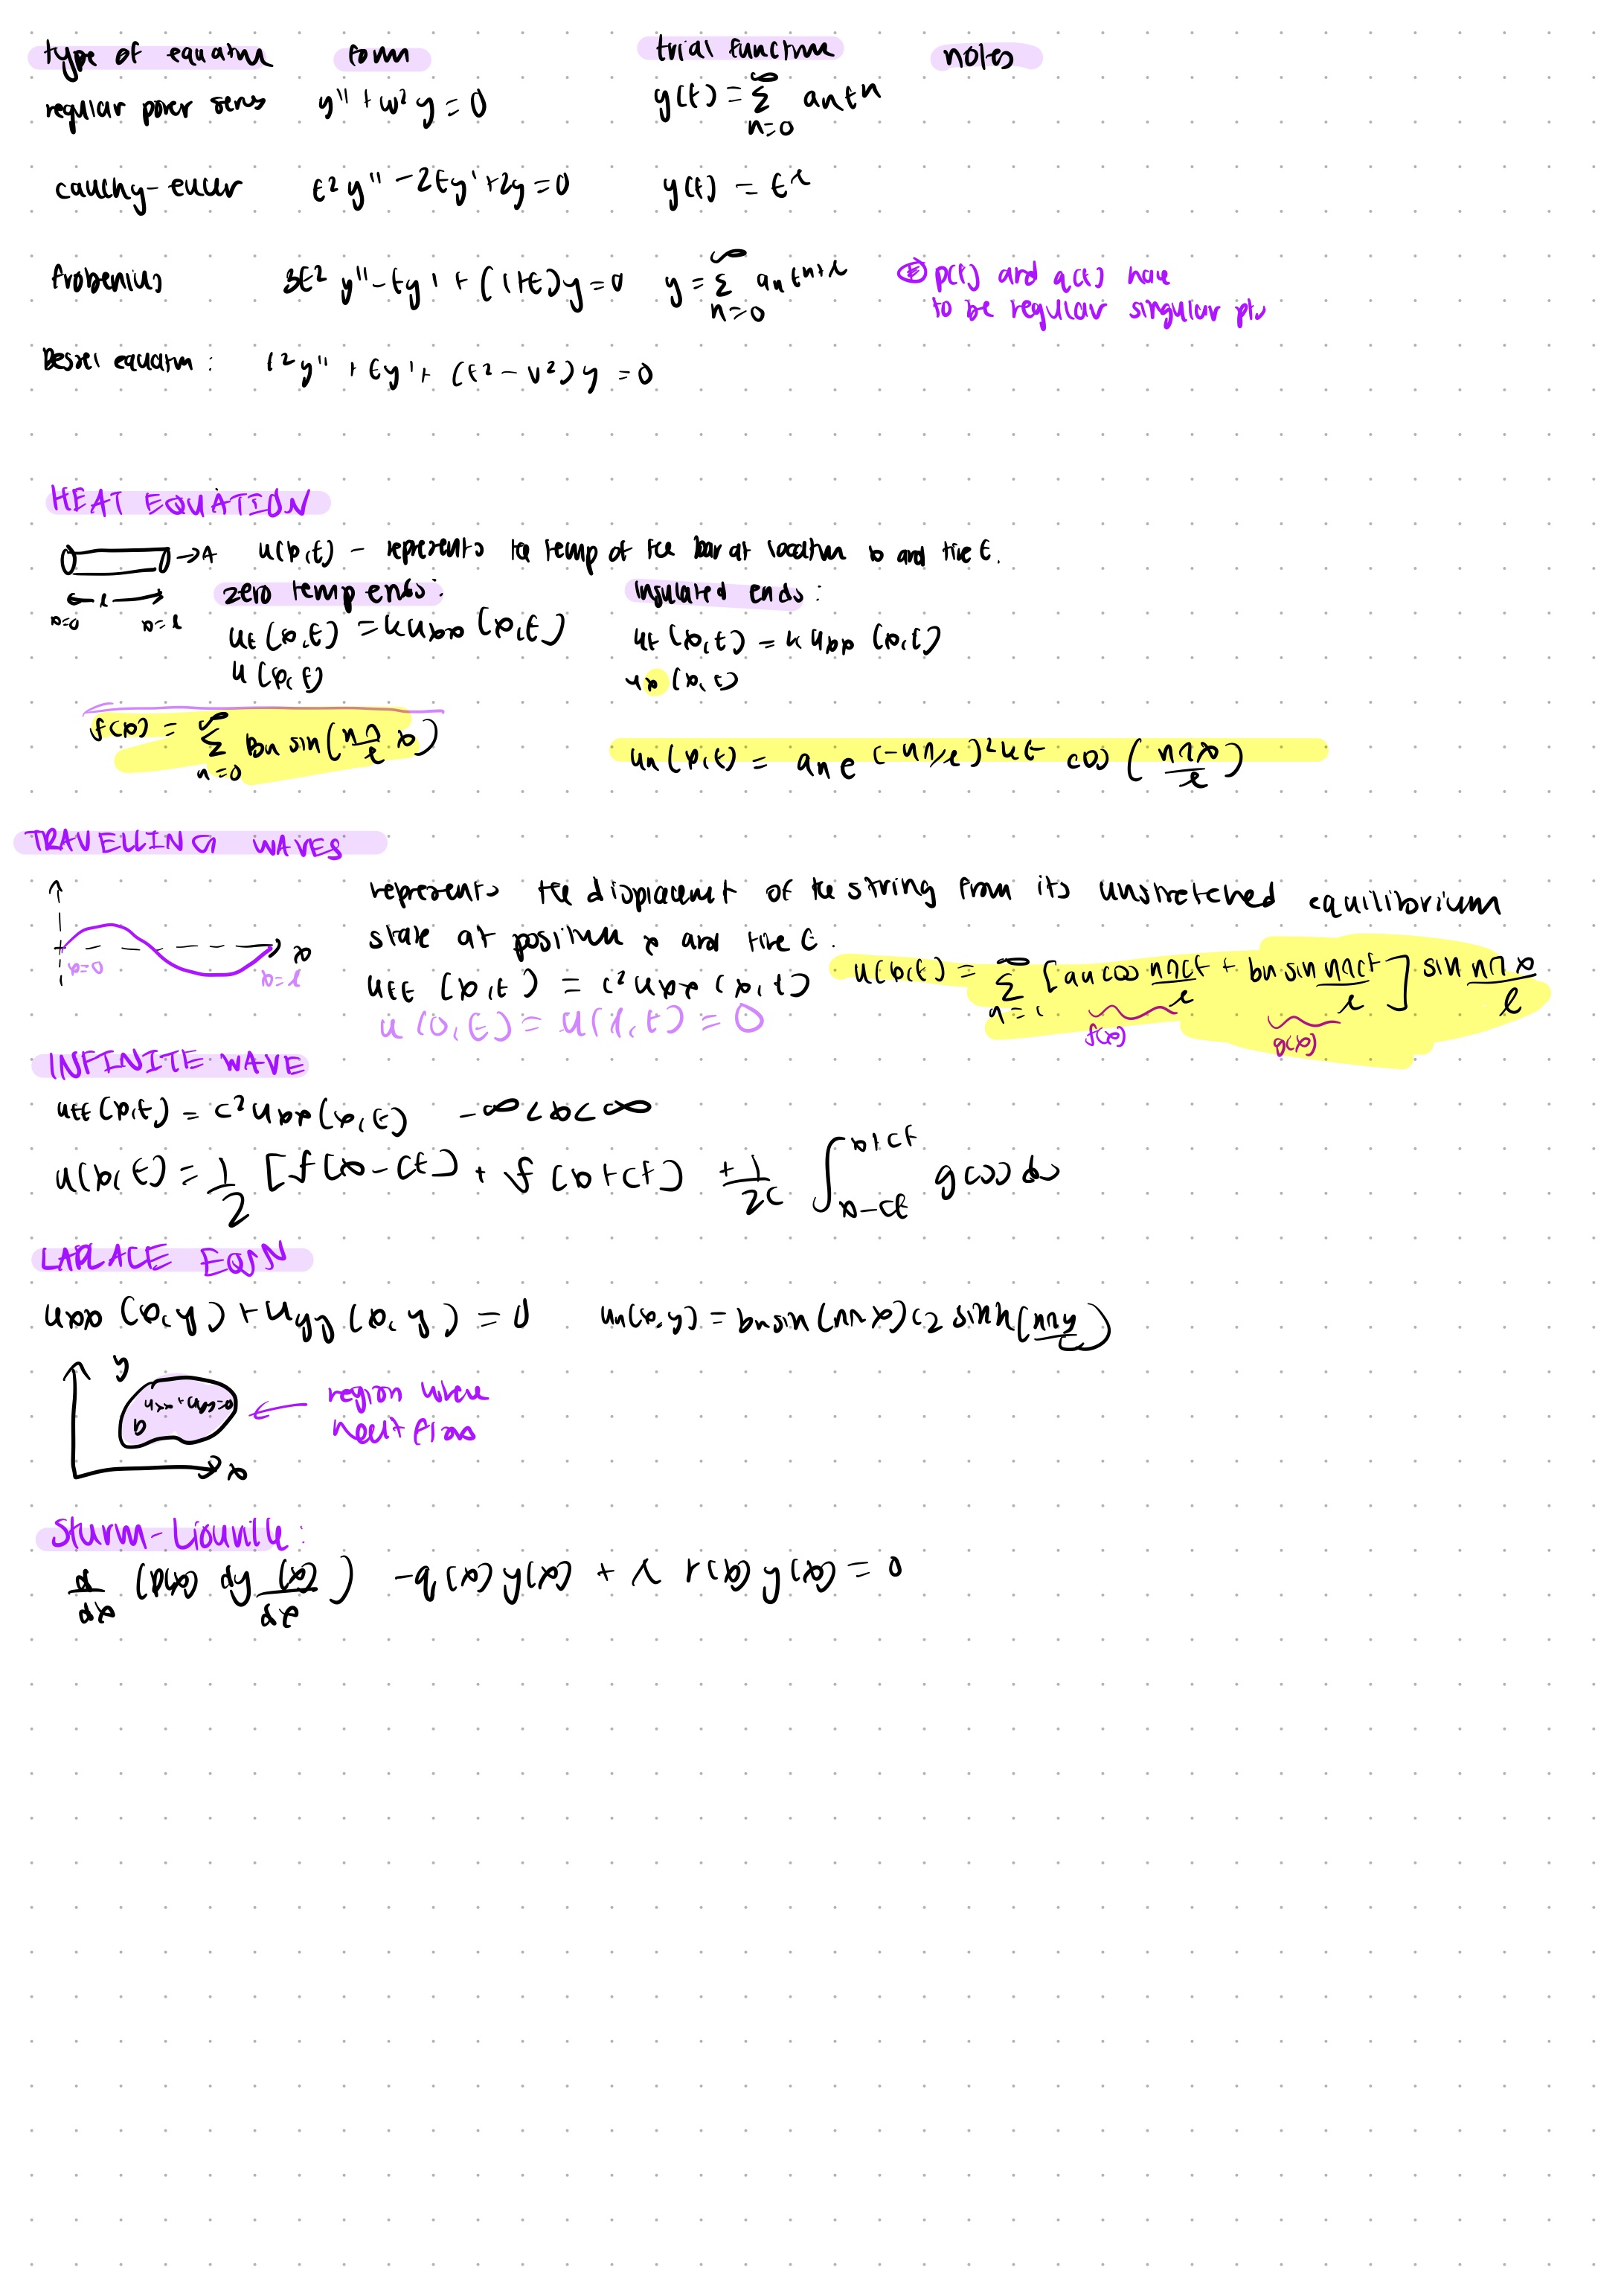 type of equation form trial function notes
regular power series y'' + ω² y = 0 y(t) = ∑ n=0 ∞ an tⁿ
cauchy-euler t² y'' - 2ty' + 2y = 0 y(t) = t^λ
frobenius 3t² y'' - ty' + (1+t)y = 0 y = ∑ n=0 ∞ an t^n+λ * p(t) and q(t) have
to be regular singular pts
Bessel equation : t² y'' + ty' + (t² - v²) y = 0
HEAT EQUATION
→A u(x,t) - represents the temp of the bar at location x and time t.
x=0 l x=l
zero temp ends: insulated ends :
ut (x,t) = kuxx (x,t) ut (x,t) = k uxx (x,t)
u (x,t) ux (x,t)
f(x) = ∑ n=0 ∞ Bn sin(nπ/l x) un (x,t) = an e (-nπ/l)² kt cos (nπx/l)
TRAVELLING WAVES
represents the displacement of the string from its unstretched equilibrium
state at position x and time t.
x=0 x=l x
utt (x,t) = c² uxx (x,t) u(x,t) = ∑ n=1 ∞ [an cos nπct/l + bn sin nπct/l] sin nπx/l
u(0,t) = u(l,t) = 0 f(x) g(x)
INFINITE WAVE
utt (x,t) = c² uxx (x,t) -∞ < x < ∞
u(x,t) = 1/2 [f(x-ct) + f(x+ct)] + 1/2c ∫ x-ct x+ct g(s) ds
LAPLACE EQSN
uxx (x,y) + uyy (x,y) = 0 un(x,y) = bn sin(nπx) c2 sinh(nπy/L)
y
uxx + uyy = 0
D
region where
heat flows
x
Sturm-Liouville:
d/dx (p(x) dy(x)/dx) - q(x) y(x) + λ r(x) y(x) = 0